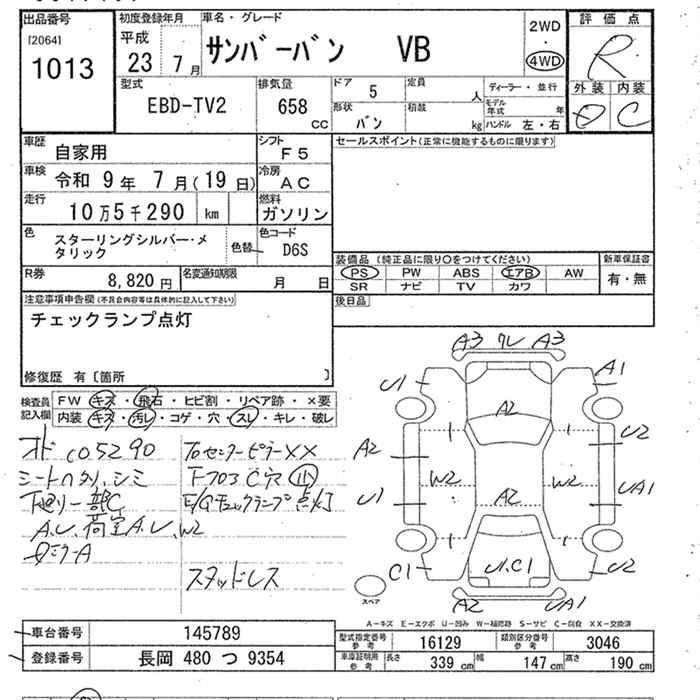 出品番号
[2064]
1013
初度登録年月
平成
23 7月
車名・グレード
サンバーバン VB
2WD
・
4WD
評価点
R
外装 内装
D C
型式
EBD-TV2
排気量
658
CC
ドア
5
定員
人
形状
バン
積載
kg
ディーラー・並行
モデル年式 年
ハンドル 左・右
車歴
自家用
シフト
F5
車検
令和 9年 7月(19日)
冷房
AC
走行
10万5千290 km
燃料
ガソリン
色
スターリングシルバー・メタリック
色替
色コード
D6S
R券
8,820円
名変通知期限
月 日
セールスポイント(正常に機能するものに限ります)
装備品 (純正品に限り○をつけてください)
PS PW ABS エアB AW
SR ナビ TV カワ
新車保証書
有・無
後日品
注意事項申告欄(不具合内容等は具体的に記入して下さい)
チェックランプ点灯
修復歴 有〔箇所 〕
検査員記入欄
FW キズ・飛石・ヒビ割・リペア跡・×要
内装 キズ・汚レ・コゲ・穴・スレ・キレ・破レ
シートヘタリ、シミ
下廻り一部C
A.U、荷室A.U、W2
ロセンターピラーXX
Fフロアc穴 小
E/Gチェックランプ点灯
スタッドレス
A3 ワレ A3
U1
A1
A2
A2
U2
W2
W2
U1
A2
UA1
U1.C1
C1
U2
A2
UA1
スペア
A-キズ E-エクボ U-凹み W-補修跡 S-サビ C-腐食 XX-交換済
車台番号
145789
登録番号
長岡 480 つ 9354
型式指定番号
参考
16129
類別区分番号
参考
3046
車庫証明用
参考
長さ
339 cm
幅
147 cm
高さ
190 cm